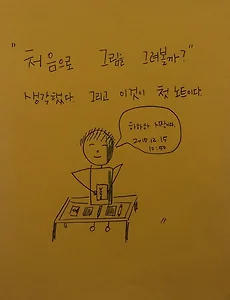 "처음으로 그림을 그려볼까?"
생각했다. 그리고 이것이 첫 노트이다.
2017.12.15
10:50